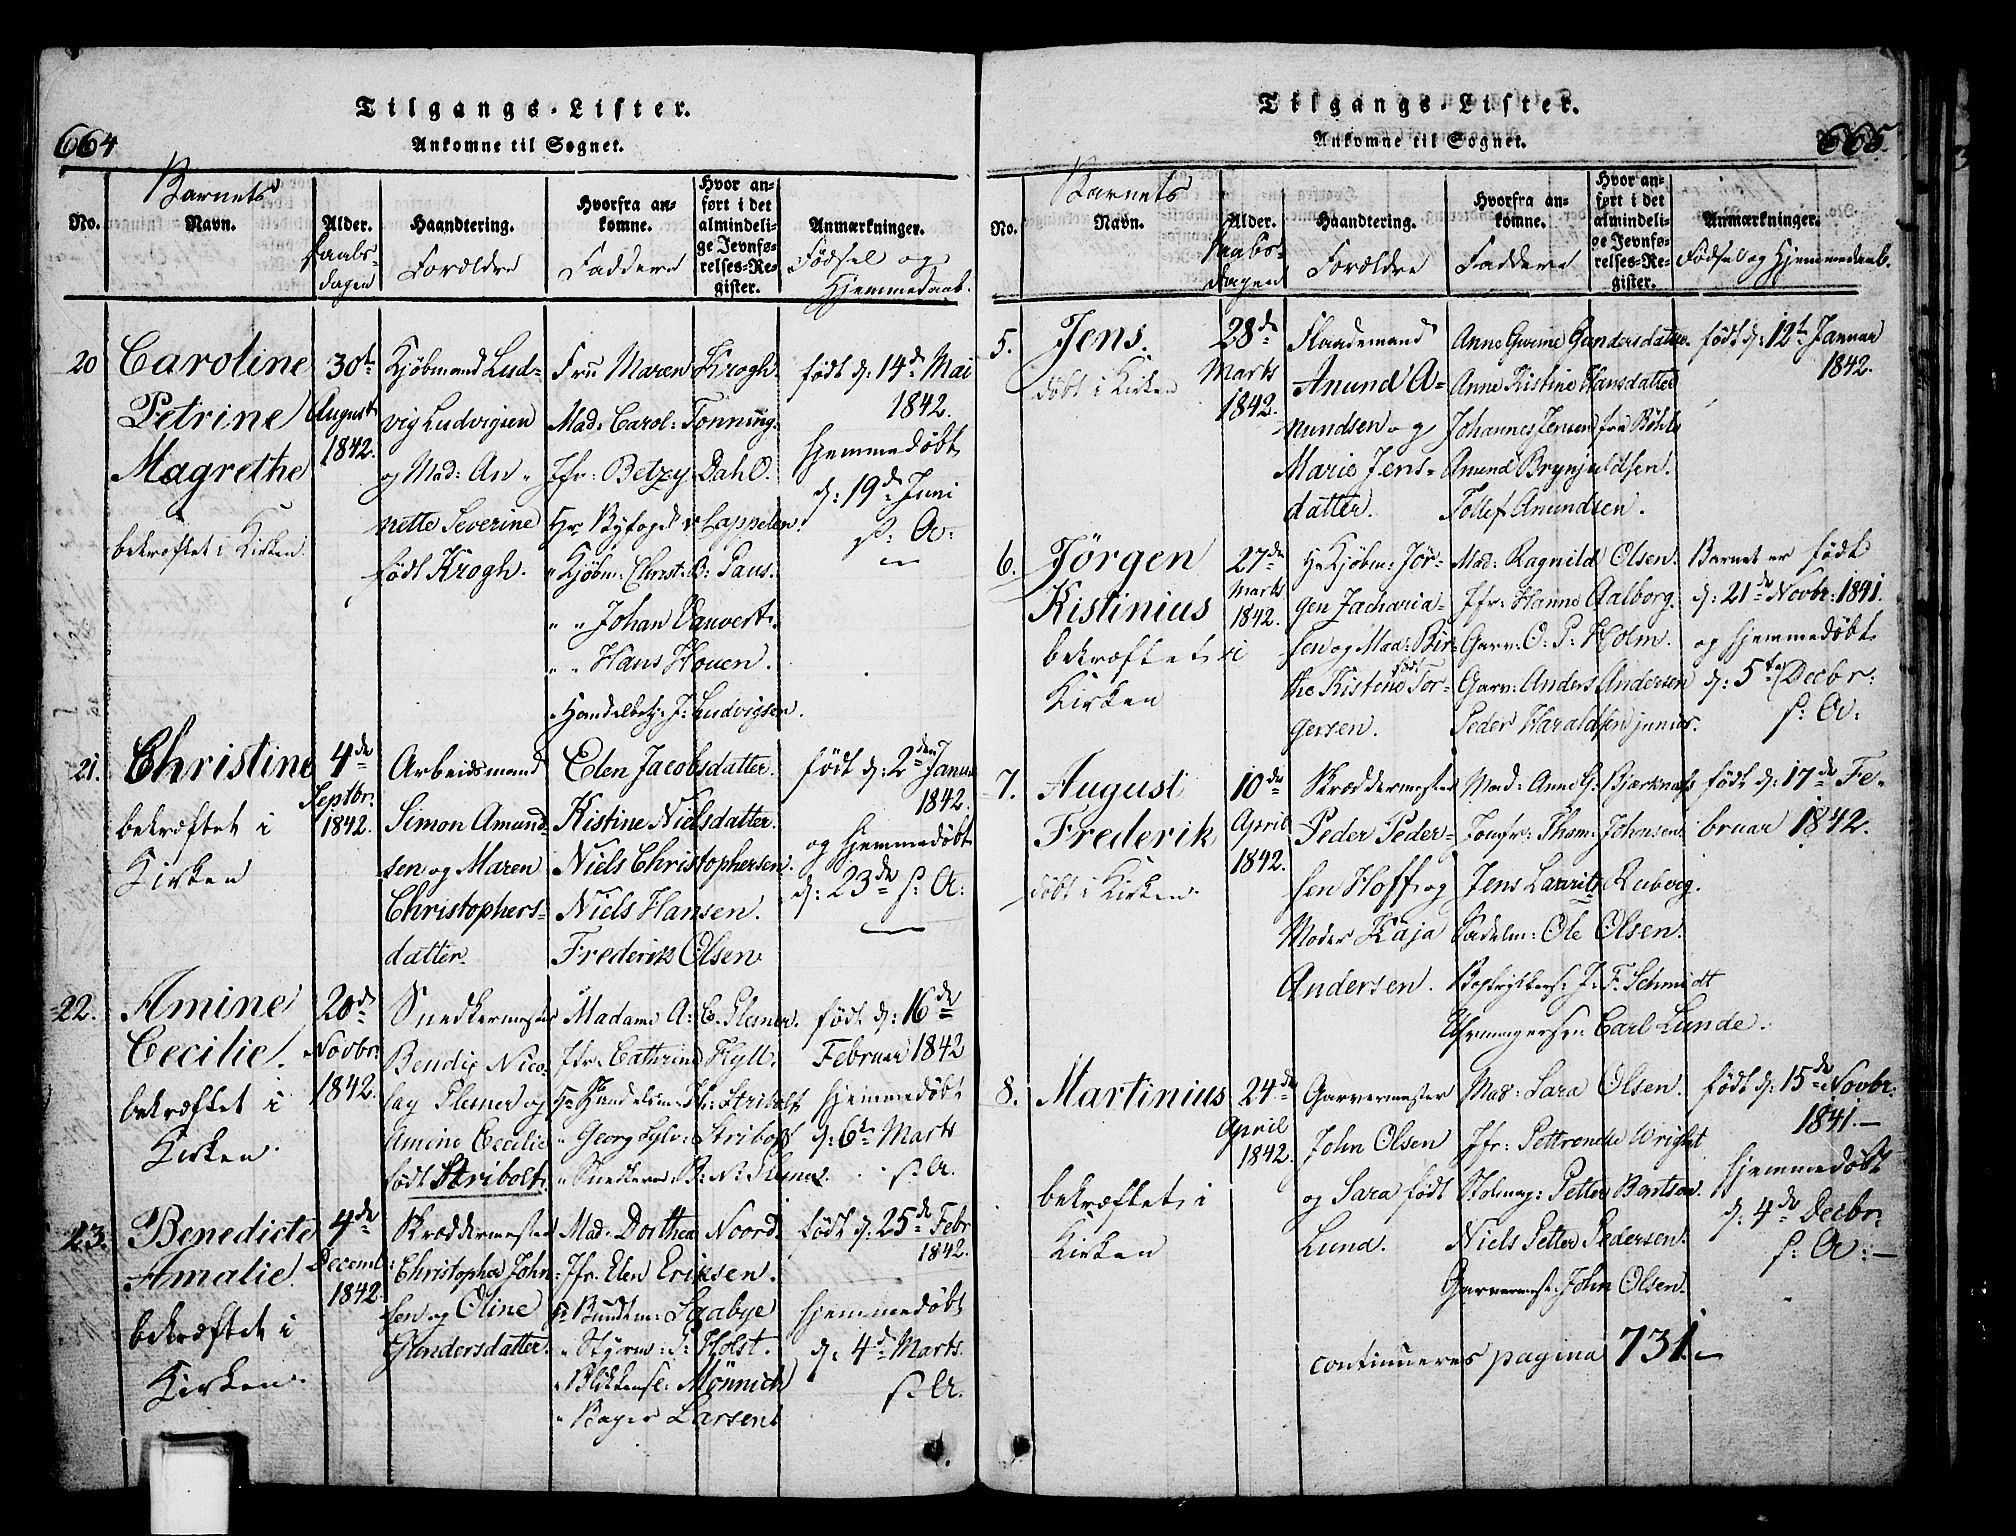 664
Tilgangs-Lister.
Ankomne til Sognet.
No.
Barnets
Navn.
Alder.
Daabs-
dagen
Haandtering.
Forældre
Hvorfra an-
komne.
Faddere
Hvor an-
ført i det
almindeli-
ge Jevnfø-
relses-Re-
gister.
Anmærkninger.
Fødsel og
Hjemmedaab.
20
Caroline
Petrine
Magrethe
bekræftet i Kirken.
30te
August
1842.
Kjøbmand Lud-
vig Ludvigsen
og Mad: An-
nette Severine
født Krogh.
Fru Maren Krogh.
Mad: Carol: Tonning.
Jfr: Betzy Dahl.
Hr. Byfoged v. Cappelen.
" Kjøbm: Christ: B: Paus.
" " Johan Dauvert.
" " Hans Houen.
" Handelbetj: J: Ludvigsen.
født d: 14de Mai
1842.
hjemmedøbt
d: 19de Juni
s: A:
21.
Christine
bekræftet i
Kirken
4de
Septbr.
1842.
Arbeidsmand
Simon Amund-
sen og Maren
Christophers-
datter.
Elen Jacobsdatter.
Kistine Nielsdatter.
Niels Christophersen.
Niels Hansen.
Frederik Olsen
født d: 2den Januar
1842.
og hjemmedøbt
d: 23de s: A:
22.
Amine
Cecilie.
bekræftet i
Kirken.
20de
Novbr.
1842.
Snedkermester
Bendix Nico-
lay Plesner og
Amine Cecilie
født Stribolt.
Madame A: C: Plesner.
Jfr: Cathrine Hyll.
Hr Handelsm: Stribolt
" Georg Sylv: Stribolt
" Snedkerm B: N: Plesner.
født d: 16de
Februar 1842
hjemmedøbt
d: 6te Marts
s: A.
23.
Benedicte
Amalie.
bekræftet i
Kirken.
4de
Decemb:
1842.
Skræddermester
Christopher John-
sen og Oline
Gundersdatter.
Mad: Dorthea Noord.
Jfr. Elen Eriksen.
Hr Bundtm: Saabye
" Styrm: P: Holst.
" Blikkensl: Mönnich
" Bager Larsen.
født d: 25de Febr
1842.
hjemmedøbt
d: 4de Marts.
s: A.
665
Tilgangs-Lister.
Ankomne til Sognet.
No.
Barnets
Navn.
Alder.
Daabs-
dagen
Haandtering.
Forældre
Hvorfra an-
komne.
Faddere
Hvor an-
ført i det
almindeli-
ge Jevnfø-
relses-Re-
gister.
Anmærkninger.
Fødsel og Hjemmedaab.
5.
Jens.
døbt i Kirken
28de
Marts
1842.
Anund A-
nundsen og
Marie Jens-
datter.
Anne Gurine Gundersdatter.
Anne Kistine Hansdatter
Johannes Jensen fra Bøhle
Amund Brynjuldsen.
Tollef Anundsen.
født d: 12te Januar
1842.
6.
Jörgen
Kistinius
bekræftet i
Kirken
27de
Marts
1842.
Hr Kjøbm: Jör-
gen Zacharia-
sen og Mad: Bir-
the Kistine født Tor-
gersen.
Mad: Ragnild Olsen.
Jfr: Hanne Aalborg.
Garv: O. P: Holm.
Garv: Anders Andersen
Peder Haraldsen junior.
Barnet er født
d: 21de Novbr: 1841.
og hjemmedøbt
d: 5te Decbr:
s: A:
7.
August
Frederik
døbt i Kirken.
10de
April
1842.
Skræddermester
Peder Peder-
sen Hoff og
Moder Kaja
Andersen.
Mad: Anne G. Bjerknæs
Jomfr: Thom: Johnsen.
Jens Lauritz Ruberg.
Sadelm: Ole Olsen.
Bogtrykkers: J: F: Schmidt
Uhrmagersv: Carl Lunde.
født d: 17de Fe-
bruar 1842.
8.
Martinius
bekræftet i
Kirken
24de
April
1842.
Garvermester
John Olsen
og Sara født
Lund.
Mad: Sara Olsen.
Jfr: Pettronelle Wright
Stolmag: Petter Bentsen.
Niels Petter Pedersen.
Garvermest: John Olsen.
født d: 15de Novbr:
1841.—
hjemmedøbt
d: 4de Decbr:
s: A:—
continueres pagina 731.